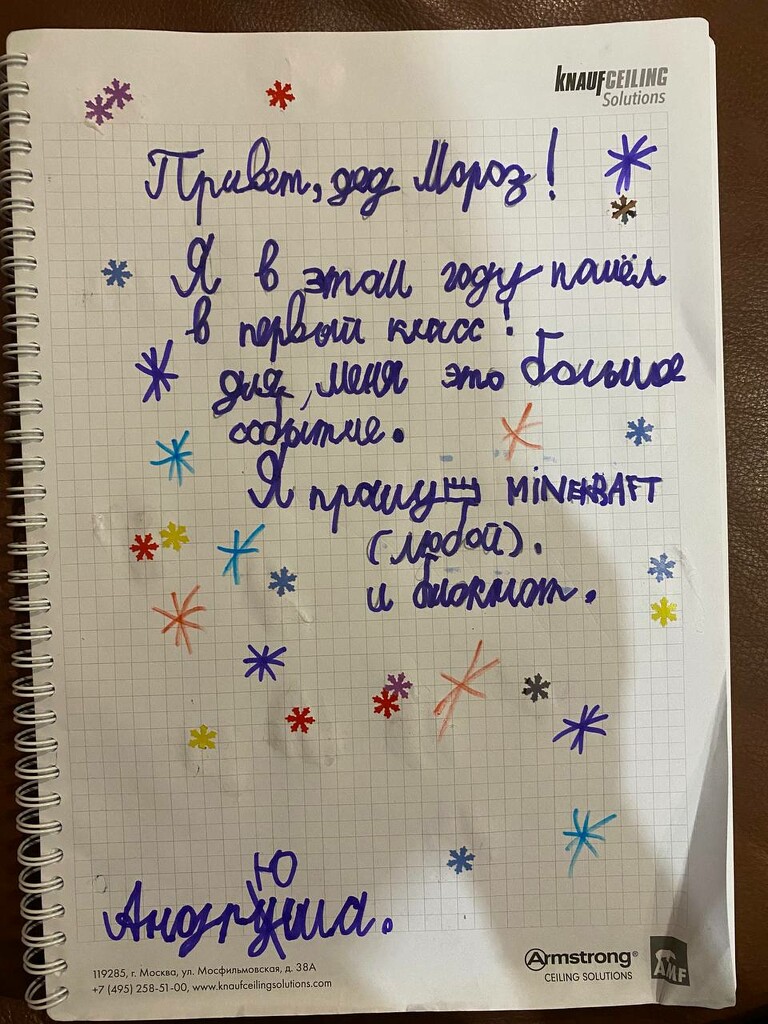 KNAUFCEILING
Solutions
Привет, дед Мороз!
Я в этом году пошёл
в первый класс!
для меня это большое
событие.
Я прошу MINEKRAFT
(любой).
и блокмот.
Ю
Андруша.
119285, г. Москва, ул. Мосфильмовская, д. 38А
+7 (495) 258-51-00, www.knaufceilingsolutions.com
Armstrong®
CEILING SOLUTIONS
AMF